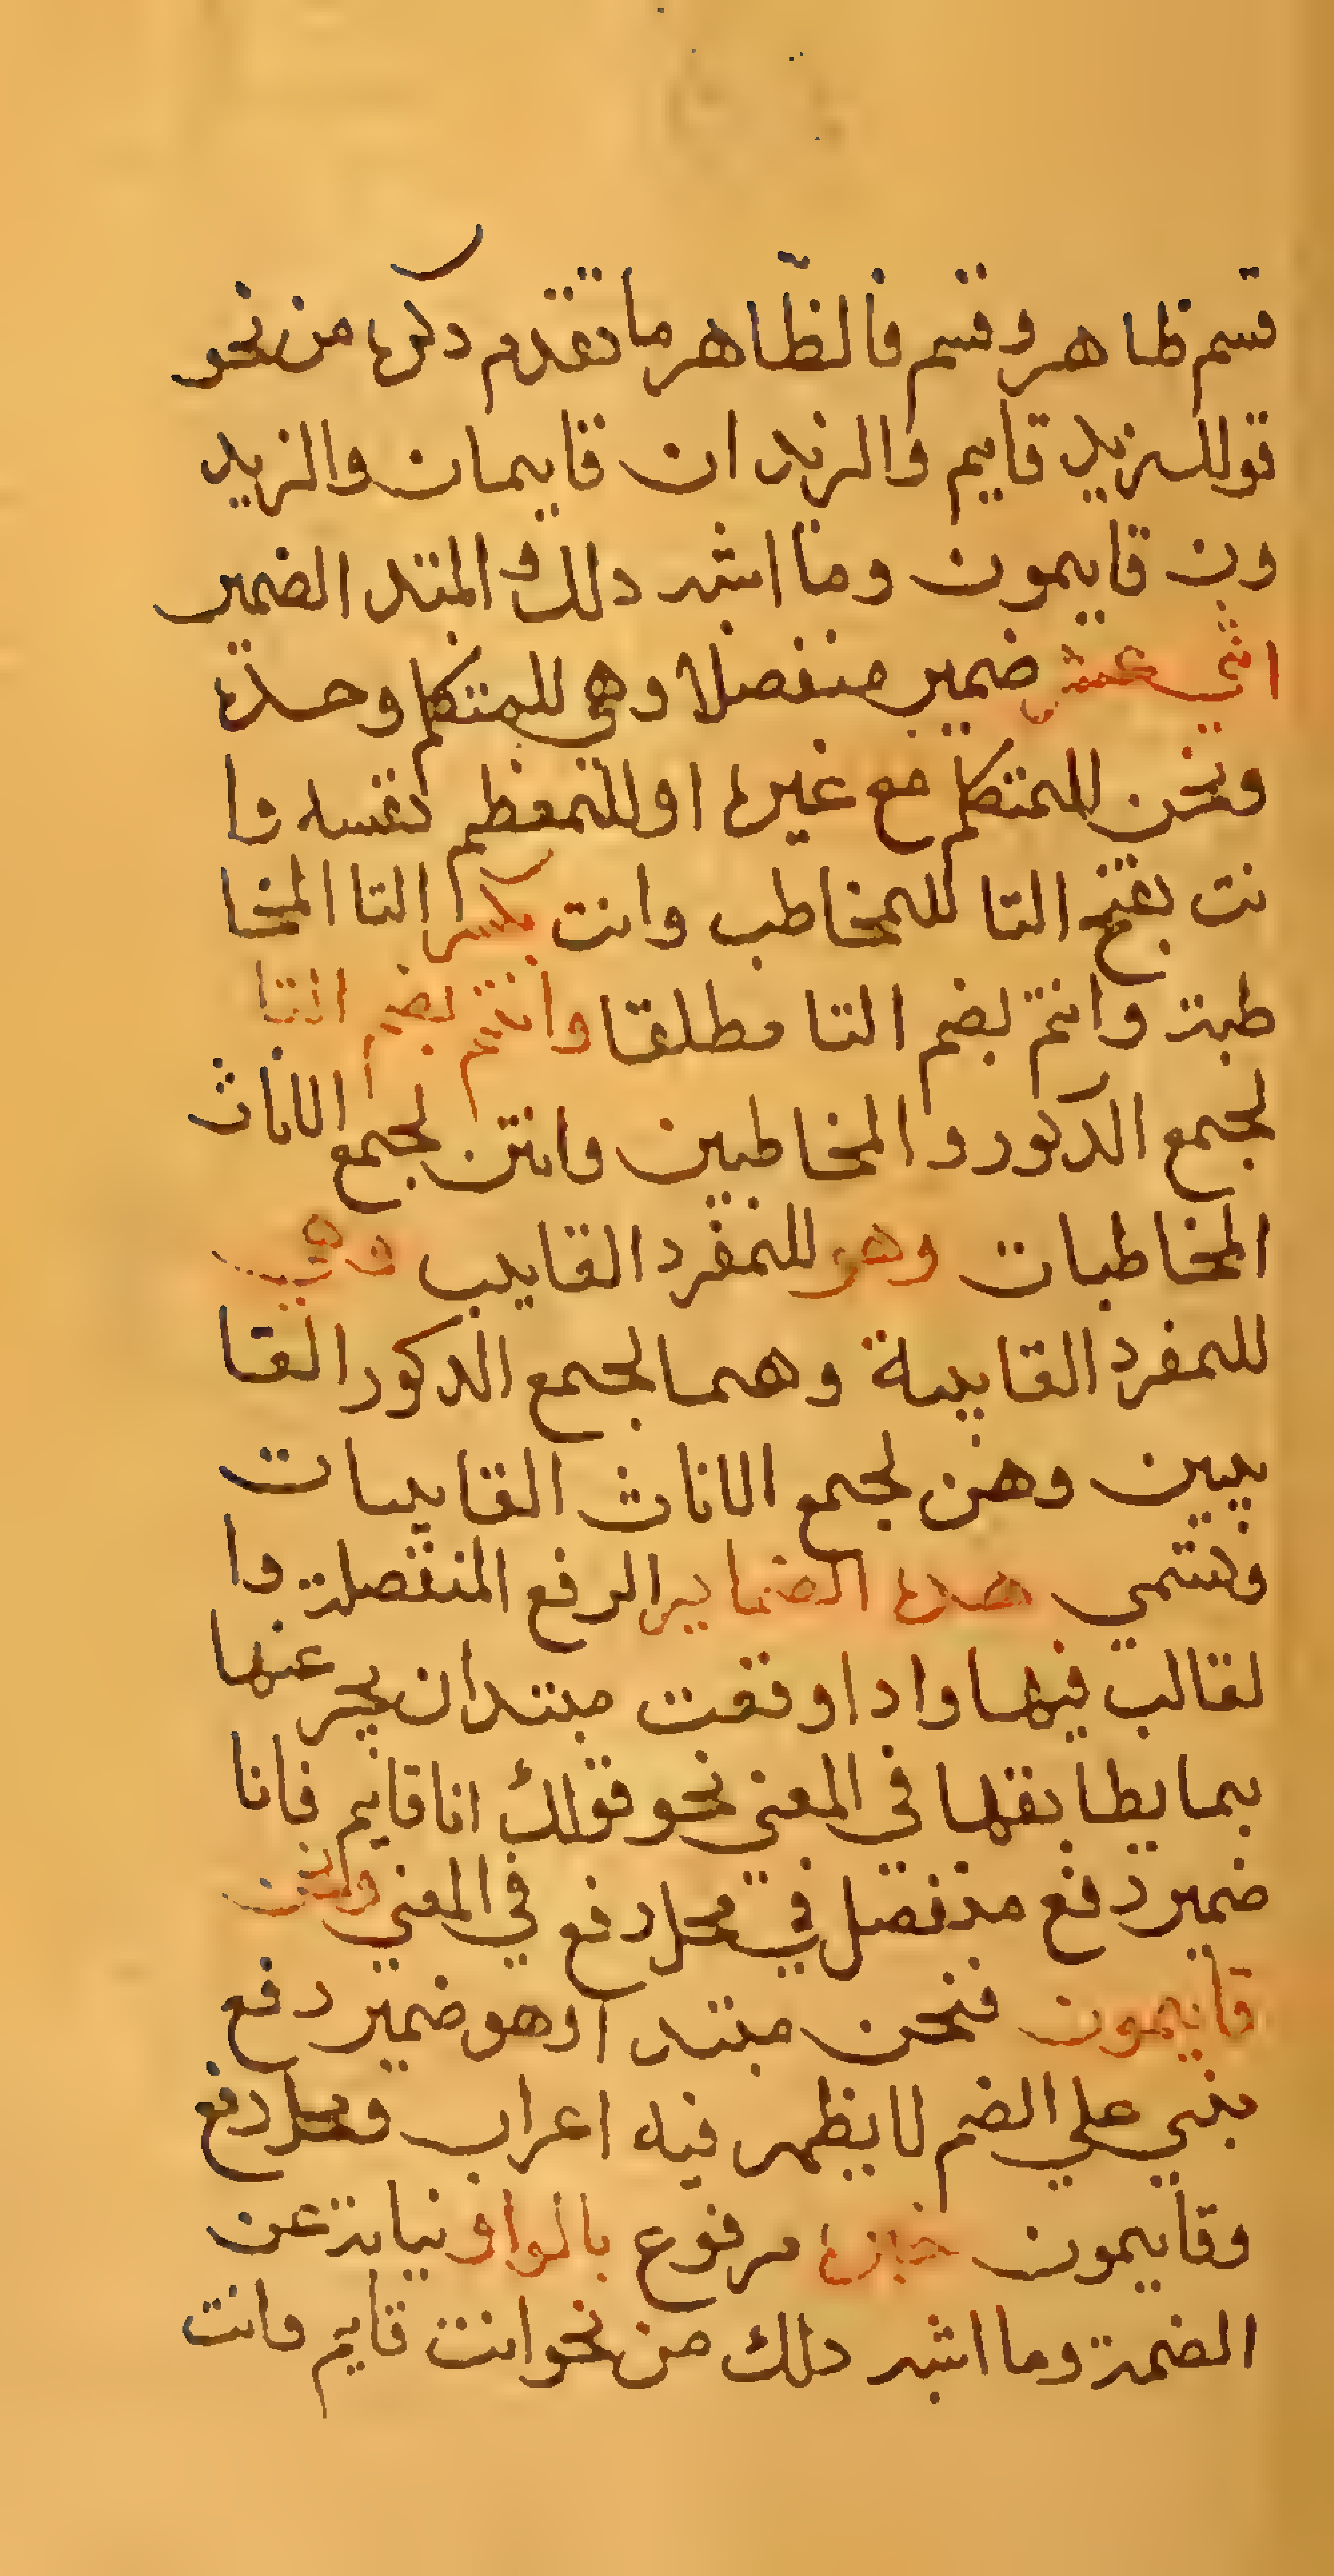 قسم ظاهر وقسم فالظّاهر ما تقدم دكره من نحو
قولك زيد قايم والزيدان قايمان والزيد
ون قايمون وما اشبه دلك المبتد الضمير
اثني عشر ضمير منفصلا وهي للمتكلم وحده
ونحن للمتكلم مع غيره او للمعظم نفسه وا
نت بفتح التا للمخاطب وانت بكسر التا المخا
طبة وانتم بضم التا مطلقا وانتم بضم التا
لجمع الدكور و المخاطبين وانتن لجمع الاناث
المخاطبات وهو للمفرد القايب وهي
للمفرد القايبة وهما لجمع الدكور القا
يبين وهن لجمع الاناث القايبات
وتسمي هده الضماير الرفع المنفصلة وا
لقالب فيها وادا وقعت مبتدا ن يخبر عنها
بما يطابقها في المعني نحو قولك انا قايم فانا
ضمير رفع منفصل في محل رفع في المعني ونحن
قايمون فنحن مبتدا وهو ضمير رفع
بني علي الضم لا يظهر فيه اعراب ومحل رفع
وقايمون خبره مرفوع بالواو نيابة عن
الضمة وما اشبه دلك من نحو انت قايم وانت